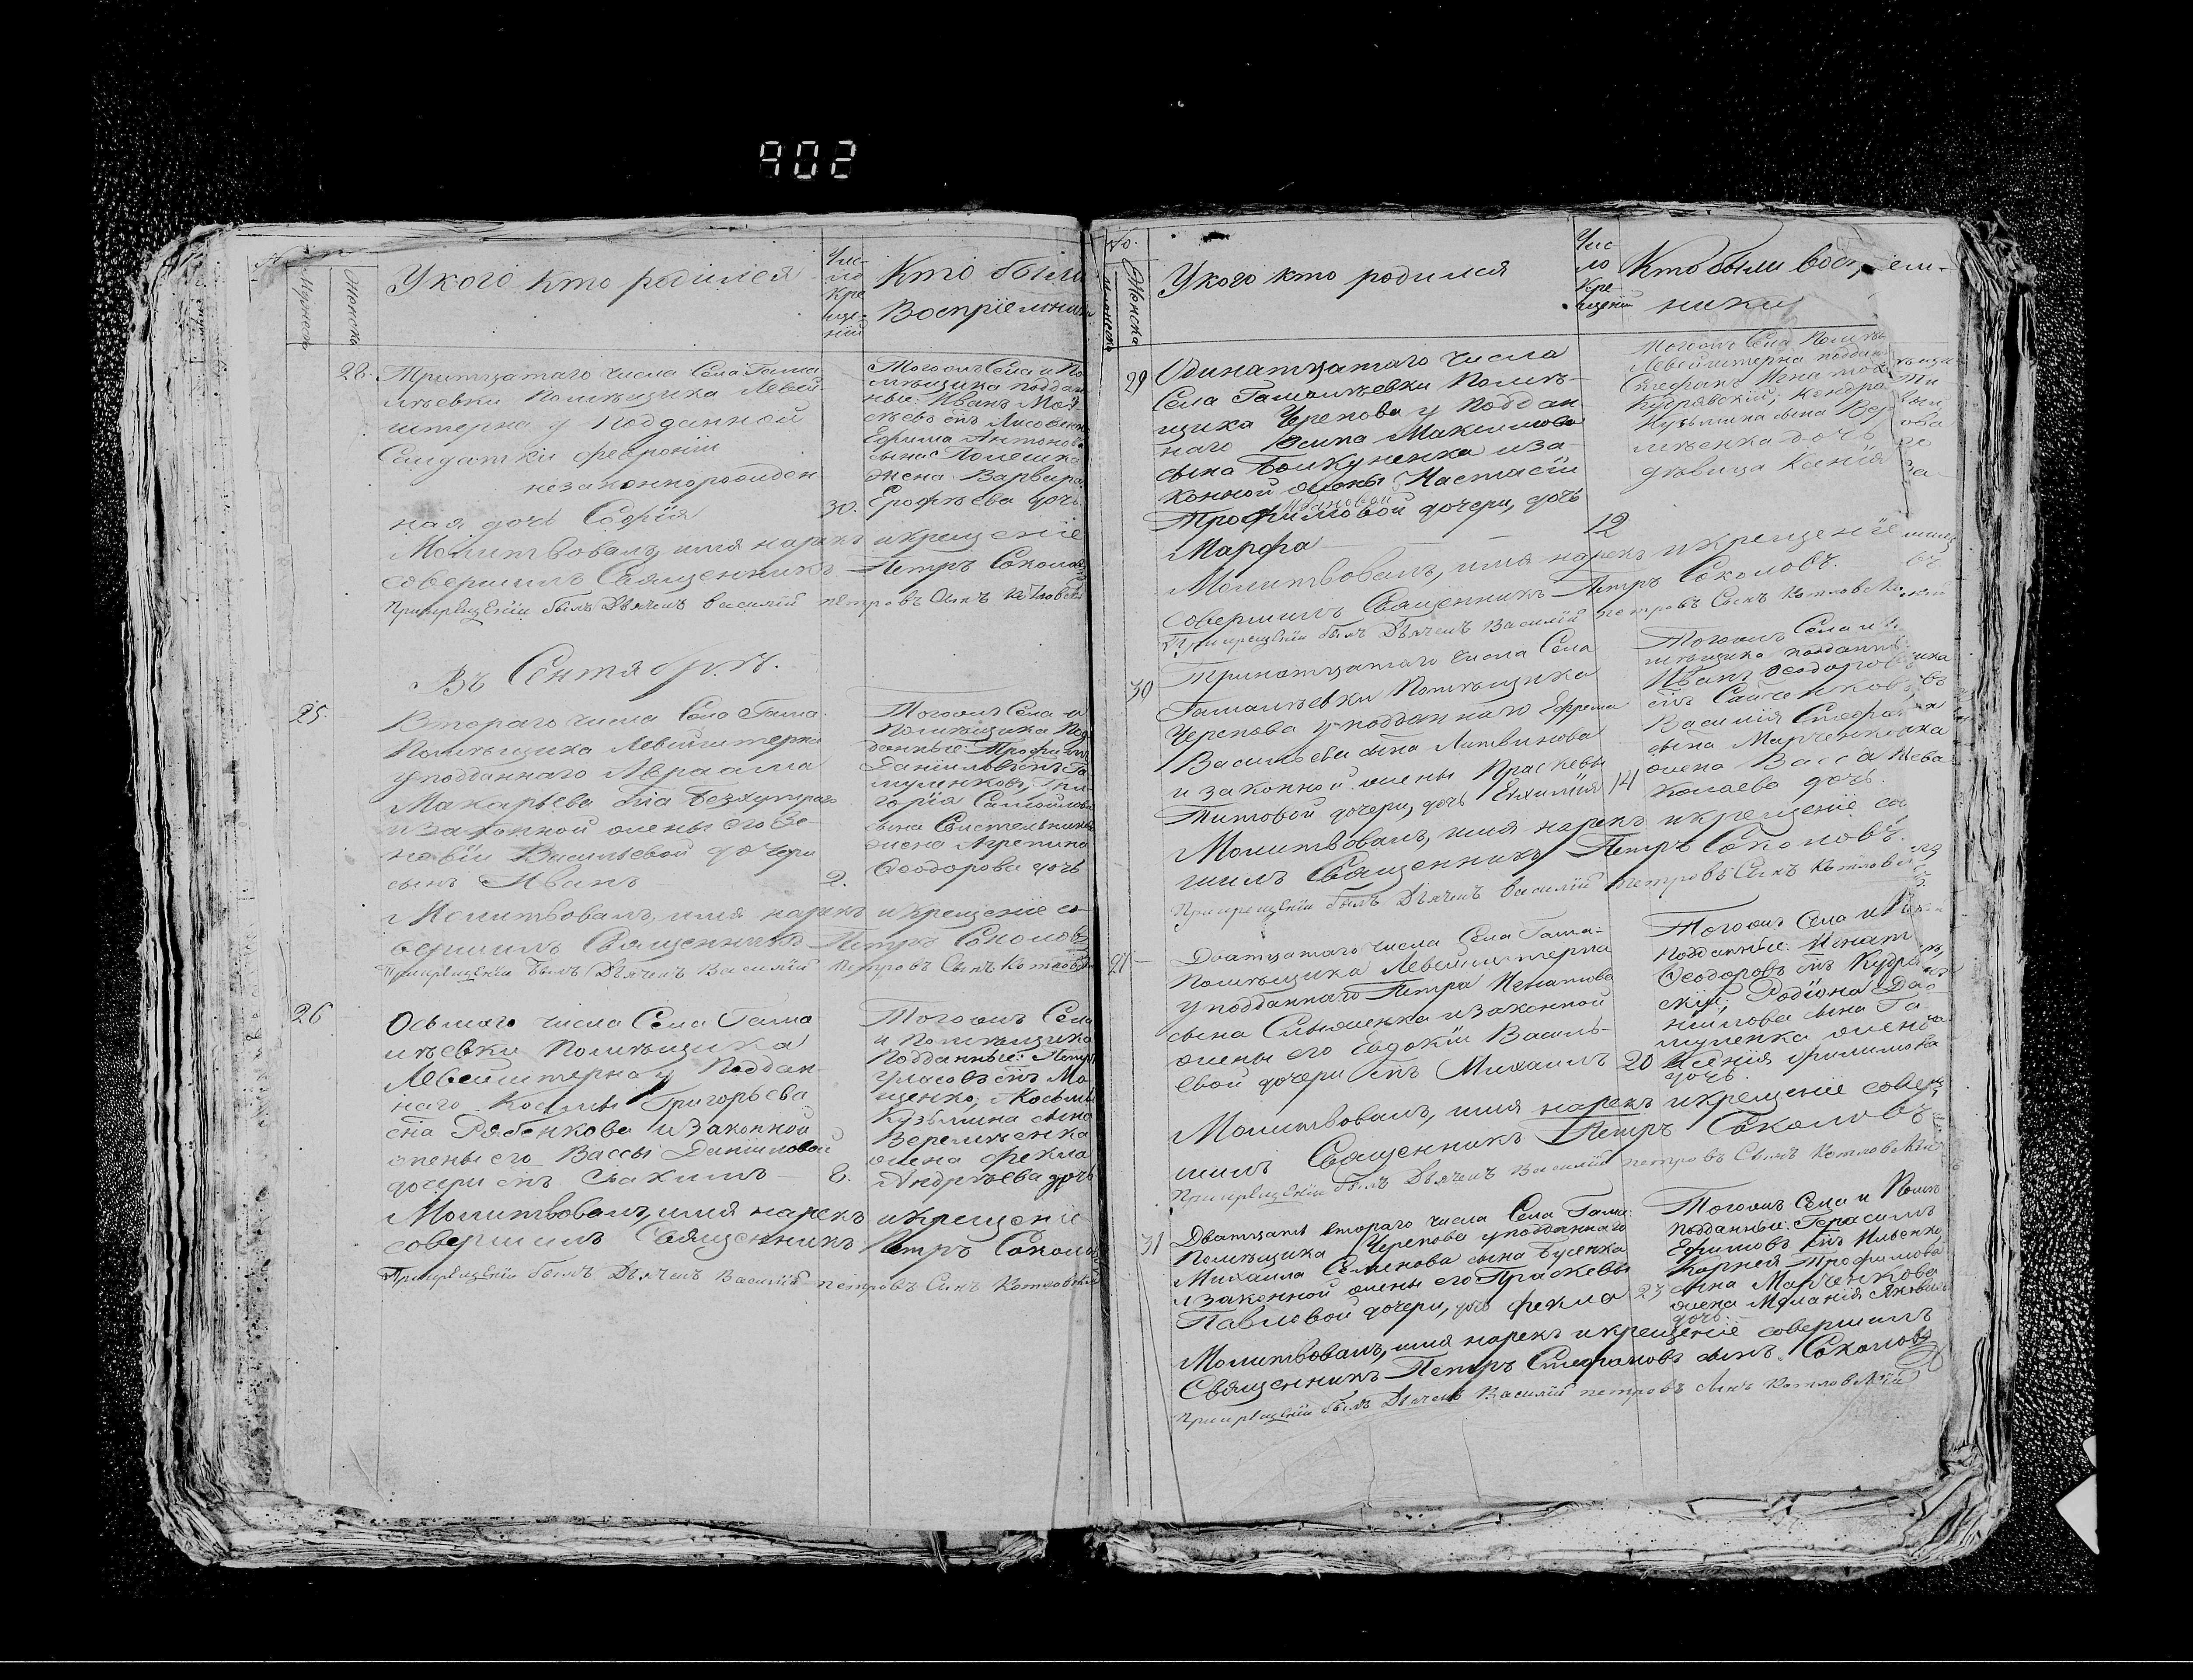 902
№
Мужеска
Женска
У кого кто родился
Чис-
ло
Кре
ще-
нїй
Кто были
Воспрїемники
28. Тритцатаго числа Села Гама
лѣевки Помѣщика Левен-
штерна у Подданной
Солдатки Феѵронїи
незаконнорожден
ная дочь Софїя 30.
Тогожъ Села и По
мѣщика поддан
ные: Иванъ
Ефима Антонова
сына
жена Варвара
Ерофѣева дочь
Молитвовалъ, имя нарекъ и крещенїе
совершилъ Священникъ Петръ Соколовъ
При крещенїи былъ Дьячекъ Василїй петровъ Сынъ Котловскїй
Въ Сентябрѣ.
25. Втораго числа Села Гама.
Помѣщика Левенштерна
у подданнаго Авраама
Макарьева сна
и законной жены его Зе-
новїи Васильевой дочери
сынъ Иванъ 2.
Тогожъ Села и
Помѣщика Под
данные: Трофимъ
Данїиловъ снъ Га
муленковъ, Гри
горїя Самойлова
сына
жена Агрепина
Ѳеодорова дочь
Молитвовалъ, имя нарекъ и крещенїе со-
вершилъ Священникъ Петръ Соколовъ
При крещенїи былъ Дьячекъ Василїй Петровъ Сынъ Котловскїй
26 Осьмаго числа Села Гама
лѣевки Помѣщика
Левенштерна у Поддан
наго Космы Григорьева
сна Рябенкова и законной
жены его Вассы Данїиловой
дочери снъ 8.
Тогожъ Села
и Помѣщика
Подданные: Петръ
Власовъ снъ Мо
щенко, Космы
Кузьмина сына
Веремѣенка
жена Фекла
Андрѣева дочь
Молитвовалъ, имя нарекъ и крещенїе
совершилъ Священникъ Петръ Соколовъ
При крещенїи былъ Дьячекъ Василїй петровъ Сынъ Котловскїй
№.
Мужеска
Женска
У кого кто родился
Чис
ло
Кре-
щенїй
Кто были воспрїем-
ники
29 Одинатцатаго числа
Села Гамалѣевки Помѣ-
щика Черепова у Поддан
наго Осипа Максимова
сына и за-
конной жены Настасїи
Трофимовой дочери, дочь
Марфа 12
Тогожъ Села Помѣщ
Левенштерна поддан
Стефанъ Игнатовъ
Кудрявскїй, Кондра
Кузьмина сына Вер
мѣенка дочь
дѣвица Ксенїя
Молитвовалъ, имя нарекъ и крещенїе
совершилъ Священникъ Петръ Соколовъ.
При крещенїи былъ Дьячекъ Василїй петровъ Сынъ Котловскїй
30 Тринатцатаго числа Села
Гамалѣевки Помѣщика
Черепова у подданнаго Ефрема
Васильева сына Литвинова
и законной жены Праскевы
Титовой дочери, дочь Евхимїя 14
Тогожъ Села и
мѣщика подданн
Иванъ Ѳеодоровъ
снъ
Василїя Стефана
сына Марченкова
жена Васса
дочь.
Молитвовалъ, имя нарекъ и крещенїе со
шилъ Священникъ Петръ Соколовъ.
При крещенїи былъ Дьячекъ Василїй петровъ Сынъ Котловскїй
27 Дватцатаго числа Села Гама-
Помѣщика Левенштерна
у подданнаго Петра Игнатова
сына и законной
жены его Евдокїи Василь-
евой дочери снъ Михаилъ 20
Тогожъ Села и
Подданные: Игнат
Ѳеодоровъ снъ Кудряв
скїй, Родїона Да
нїилова сына Га
муленка жена
Ксенїя Филимонова
дочь
Молитвовалъ, имя нарекъ и крещенїе совер
шилъ Священникъ Петръ Соколовъ
При крещенїи былъ Дьячекъ Василїй петровъ Сынъ Котловскїй
31 Дватцать втораго числа Села Гама:
Помѣщика Черепова у подданнаго
Михаила Семенова сына Бусенка
и законной жены его Праскевы
Павловой дочери, дочь Фекла 23
Тогожъ Села и Помѣщ
подданные: Герасимъ
Ефимовъ снъ Ильенко
Корнея Трофимова
сына Марченкова
жена Меланїя Яковлева
дочь.
Молитвовалъ, имя нарекъ и крещенїе совершилъ
Священникъ Петръ Стефановъ сынъ Соколовъ
При крещенїи былъ Дьячекъ Василїй петровъ сынъ Котловскїй